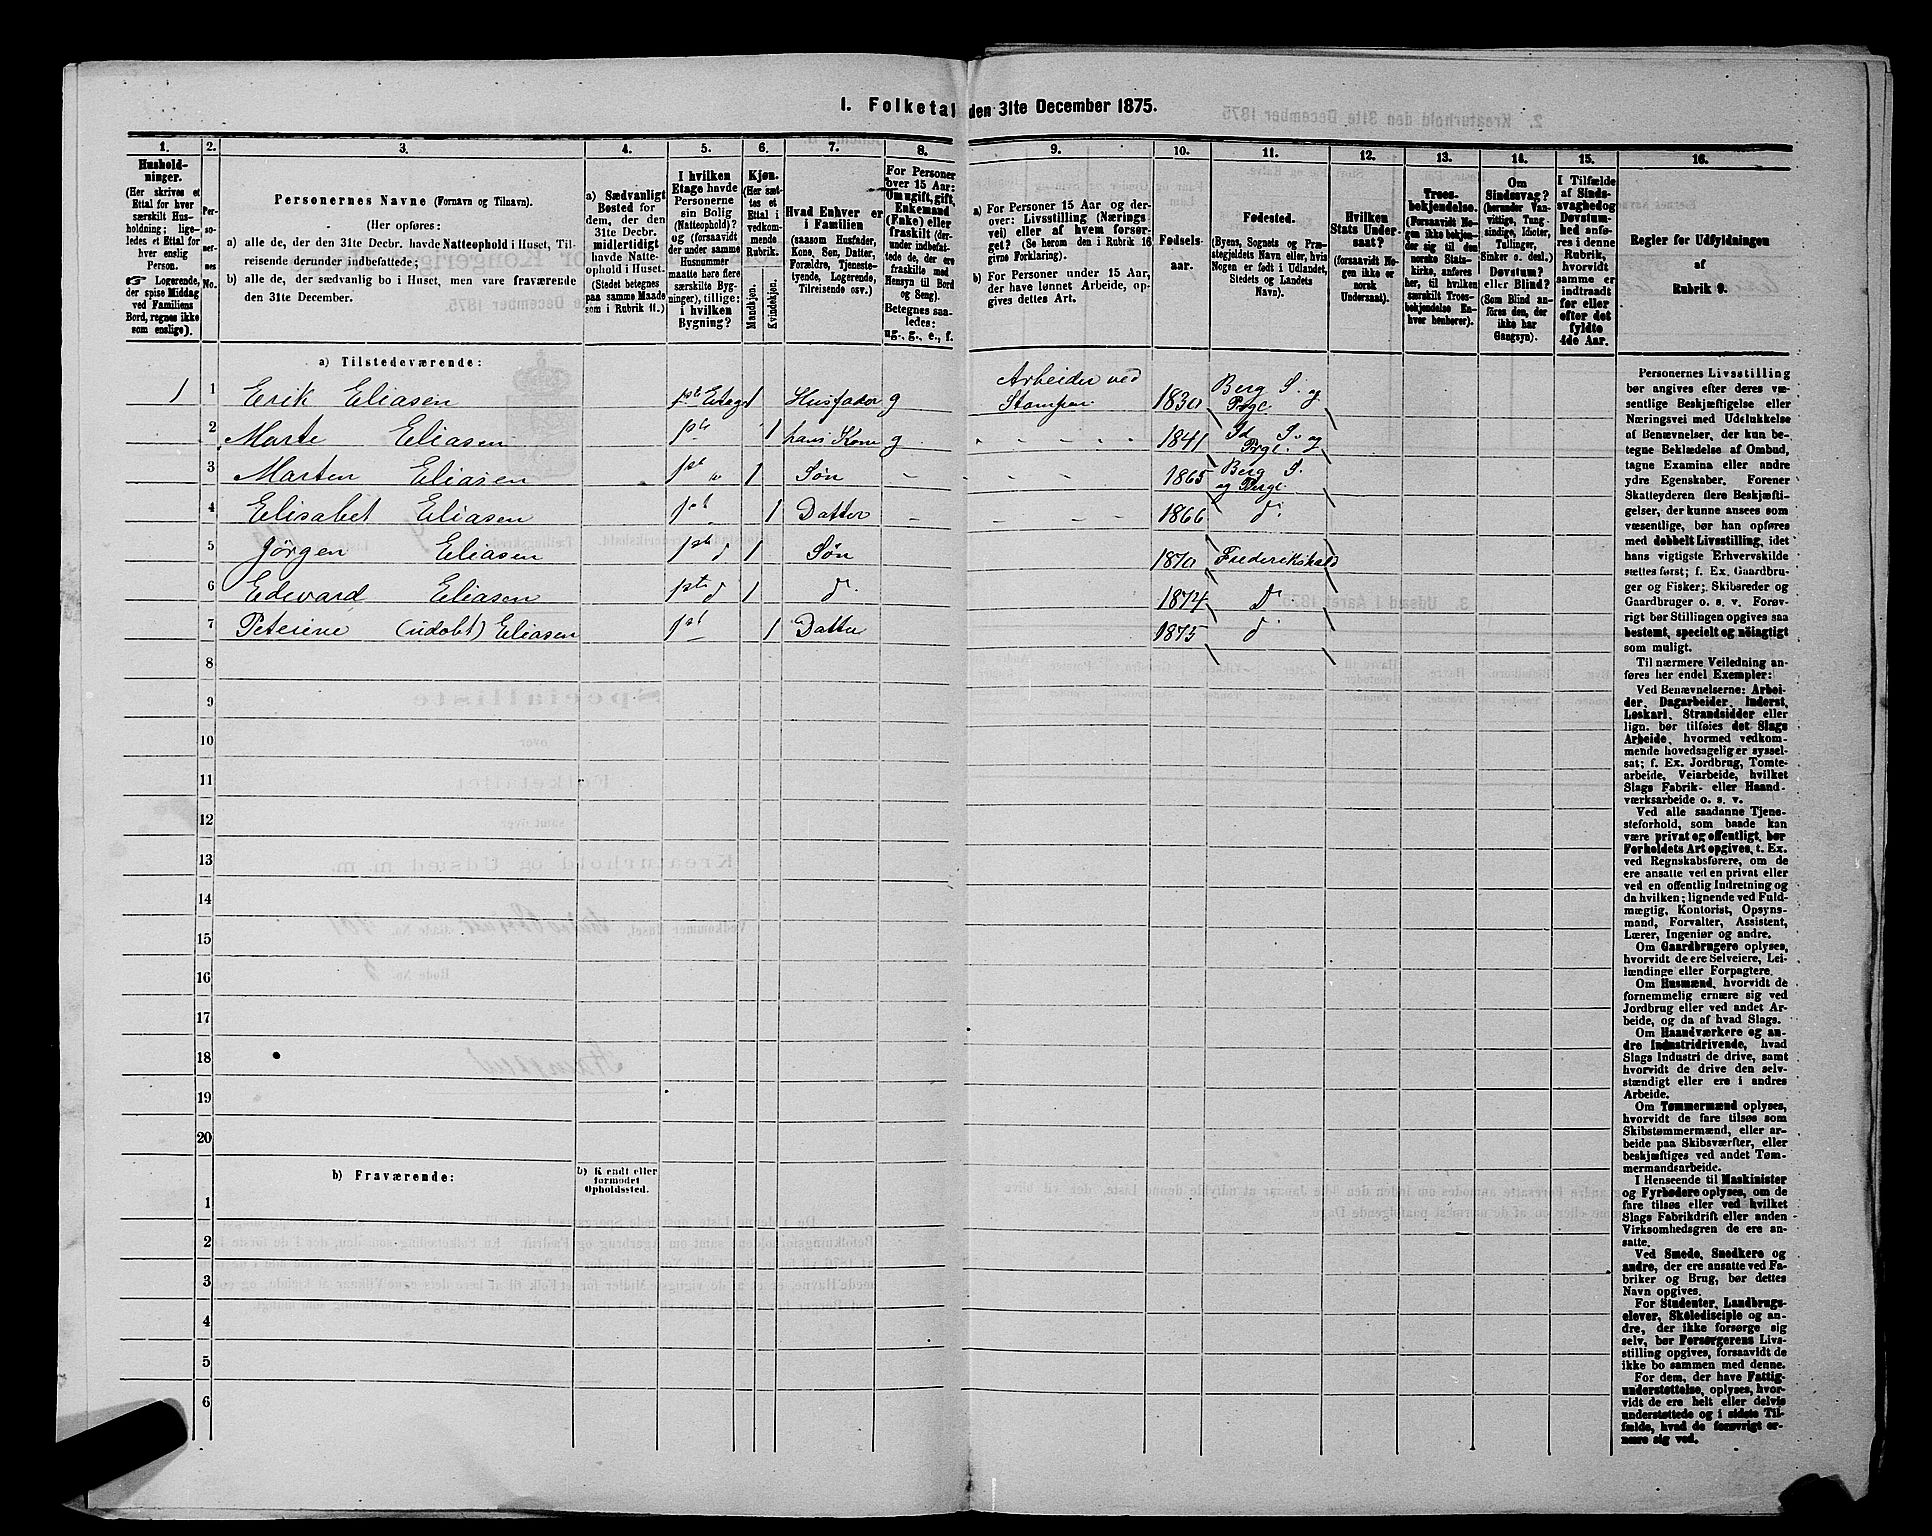 1. Folketal den 31te December 1875.
1. 2. 3. 4. 5. 6. 7. 8. 9. 10. 11. 12. 13. 14. 15. 16.
Husholdninger.
(Her skrives et
Ettal for hver
særskilt Husholdning;
ligeledes et Ettal for
hver enslig
Person.
Logerende,
der spise Middag
ved Familiens
Bord, regnes ikke
som enslige).
Personernes No.
Personernes Navne (Fornavn og Tilnavn).
(Her opføres:
a) alle de, der den 31te Decbr. havde Natteophold i Huset, Tilreisende derunder indbefattede;
b) alle de, der sædvanlig bo i Huset, men vare fraværende
den 31te December.
a) Sædvanligt
Bosted for
dem, der den
31te Decbr.
midlertidigt
havde Natteophold
i Huset.
(Stedet betegnes
paa samme Maade
som i Rubrik 11.)
I hvilken
Etage havde
Personerne
sin Bolig
(Natteophold)?
og (forsaavidt
der under samme
Husnummer
maatte høre flere
særskilte Bygninger),
tillige:
i hvilken
Bygning?
Kjøn.
(Her sættes
et
Ettal i
vedkommende
Rubrik.
Mandkjøn.
Kvindekjøn.
Hvad Enhver er
i Familien
(saasom Husfader,
Kone, Søn, Datter,
Forældre, Tjenestetyende,
Logerende,
Tilreisende osv.)
For Personer
over 15 Aar:
Om ugift, gift,
Enkemand
(Enke) eller
fraskilt (derunder
indbefattede
de, der ere
fraskilte med
Hensyn til Bord
og Seng).
Betegnes saaledes:
ug., g., e., f.
a) For Personer 15 Aar og derover:
Livsstilling (Næringsvei)
eller af hvem forsørget?
(Se herom den i Rubrik 16
givne Forklaring).
b) For Personer under 15 Aar,
der have lønnet Arbeide, opgives
dettes Art.
Fødselsaar.
Fødested.
(Byens, Sognets og Præstegjeldets
Navn eller, hvis
Nogen er født i Udlandet,
Stedets og Landets
Navn).
Hvilken
Stats Undersaat?
(forsaavidt Nogen
ikke er
norsk
Undersaat).
Troesbekjendelse.
(Forsaavidt Nogen
ikke bekjender
sig til den
norske Statskirke,
anføres
her, til hvilken
særskilt Troesbekjendelse
Enhver
henhører).
Om
Sindssvag?
(herunder Vanvittige,
Tungsindige,
Idioter,
Tullinger,
Sinker o. desl.)
Døvstum?
eller Blind?
(Som Blind anføres
den, der
ikke har
Gangsyn).
I Tilfælde
af Sindssvaghed
og
Døvstumhed
anføres
i denne
Rubrik,
hvorvidt
samme er
indtraadt
før eller
efter det
fyldte
4de Aar.
Regler for Udfyldningen
af
Rubrik 9.
a) Tilstedeværende:
1 1 Erik Eliasen 1ste Etage 1 Husfader g Arbeider ved Stampen 1830 Berg S. og Prgl.
2 Marte Eliasen 1ste 1 hans Kone g 1841 Id S. og Prgl.
3 Marten Eliasen 1st „ 1 Søn 1865 Berg S. og Prgl.
4 Elisabet Eliasen 1st 1 Datter 1866 d°
5 Jörgen Eliasen 1st d 1 Søn 1870 Frederikshald
6 Edevard Eliasen 1ste d 1 d° 1874 D°
7 Peterine (udøbt) Eliasen 1st 1 Datter 1875 d°
8
9
10
11
12
13
14
15
16
17
18
19
20
b) Fraværende:
b) Kjendt eller
formodet
Opholdssted.
1
2
3
4
5
6
Personernes Livsstilling
bør angives efter deres væsentlige
Beskjæftigelse eller
Næringsvei med Udelukkelse
af Benævnelser, der kun betegne
Beklædelse af Ombud,
tagne Examina eller andre
ydre Egenskaber. Forener
Skatteyderen flere Beskjæftigelser,
der kunne ansees som
væsentlige, bør han opføres
med dobbelt Livsstilling, idet
hans vigtigste Erhvervskilde
sættes først; f. Ex. Gaardbruger
og Fisker; Skibsreder og
Gaardbruger o. s. v. Forøvrigt
bør Stillingen opgives saa
bestemt, specielt og nøiagtigt
som muligt.
Til nærmere Veiledning anføres
her endel Exempler:
Ved Benævnelserne: Arbeider,
Dagarbeider, Inderst,
Løskarl, Strandsidder eller
lign. bør tilføies det Slags
Arbeide, hvormed vedkommende
hovedsagelig er sysselsat;
f. Ex. Jordbrug, Tomtearbeide,
Veiarbeide, hvilket
Slags Fabrik- eller Haandværksarbeide
o. s. v.
Ved alle saadanne Tjenesteforhold,
som baade kan
være privat og offentligt, bør
Forholdets Art opgives, t. Ex.
ved Regnskabsførere, om de
ere ansatte ved en privat eller
ved en offentlig Indretning og
da hvilken; lignende ved Fuldmægtig,
Kontorist, Opsynsmand,
Forvalter, Assistent,
Lærer, Ingeniør og andre.
Om Gaardbrugere oplyses,
hvorvidt de ere Selveiere, Leilændinge
eller Forpagtere.
Om Husmænd, hvorvidt de
fornemmelig ernære sig ved
Jordbrug eller ved andet Arbeide,
og da af hvad Slags.
Om Haandværkere og andre
Industridrivende, hvad
Slags Industri de drive, samt
hvorvidt de drive den selvstændigt
eller ere i andres
Arbeide.
Om Tømmermænd oplyses,
hvorvidt de fare tilsøs som
Skibstømmermænd, eller arbeide
paa Skibsværfter, eller
beskjæftiges ved andet Tømmermandsarbeide.
I Henseende til Maskinister
og Fyrbødere oplyses, om de
fare tilsøs eller ved hvilket
Slags Fabrikdrift eller anden
Virksomhedsgren de ere ansatte.
Ved Smede, Snedkere og
andre, der ere ansatte ved Fabriker
og Brug, bør dettes
Navn opgives.
For Studenter, Landbrugselever,
Skoledisciple og andre,
der ikke forsørge sig
selv, bør Forsørgerens Livsstilling
opgives, forsaavidt de
ikke bo sammen med denne.
For dem, der have Fattigunderstøttelse,
oplyses, hvorvidt
de ere helt eller delvis
understøttede og i sidste Tilfælde,
hvad de forøvrigt ernære
sig ved.